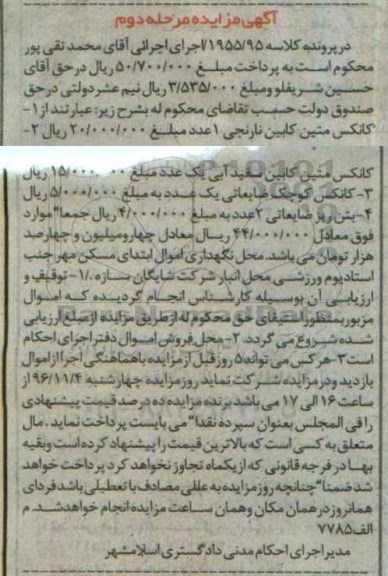 آگهی مزایده مرحله دوم
در پرونده کلاسه ۱۹۵۵/۹۵/اجرای اجرائی آقای محمد تقی پور
محکوم است به پرداخت مبلغ ۵۰/۷۰۰/۰۰۰ ریال در حق آقای
حسین شریفلو ومبلغ ۳/۵۳۵/۰۰۰ ریال نیم عشر دولتی در حق
صندوق دولت حسب تقاضای محکوم له بشرح زیر: عبارتند از ۱-
کانکس متین کابین نارنجی ۱ عدد مبلغ ۲۰/۰۰۰/۰۰۰ ریال ۲-
کانکس متین کابین سفید آبی یک عدد مبلغ ۱۵/۰۰۰/۰۰۰ ریال
۳- کانکس کوچک ضایعاتی یک عدد به مبلغ ۵/۰۰۰/۰۰۰ ریال
۴- بتن ریز ضایعاتی ۲ عدد به مبلغ ۴/۰۰۰/۰۰۰ ریال جمعا" موارد
فوق معادل ۴۴/۰۰۰/۰۰۰ ریال معادل چهار ومیلیون و چهارصد
هزار تومان می باشد. محل نگهداری اموال ابتدای مسکن مهر جنب
استادیوم ورزشی محل انبار شرکت شایگان سازه. ۱/- توقیف و
ارزیابی آن بوسیله کارشناس انجام گردیده که اموال
مزبور بمنظور استیفای حق محکوم له از طریق مزایده از مبلغ ارزیابی
شده شروع می گردد. ۲- محل فروش اموال دفتر اجرای احکام
است ۳- هر کس می تواند ۵ روز قبل از مزایده با هماهنگی اجرا از اموال
بازدید و در مزایده شرکت نماید روز مزایده چهارشنبه ۹۶/۱۱/۴ از
ساعت ۱۶ الی ۱۷ می باشد برنده مزایده ده درصد قیمت پیشنهادی
را فی المجلس بعنوان سپرده نقدا" می بایست پرداخت نماید. مال
متعلق به کسی است که بالاترین قیمت را پیشنهاد کرده است وبقیه
بها در فرجه قانونی که از یکماه تجاوز نخواهد کرد پرداخت خواهد
شد ضمنا" چنانچه روز مزایده به عللی مصادف با تعطیلی باشد فردای
همانروز در همان مکان وهمان ساعت مزایده انجام خواهد شد. م
الف ۷۷۸۵
مدیر اجرای احکام مدنی دادگستری اسلامشهر